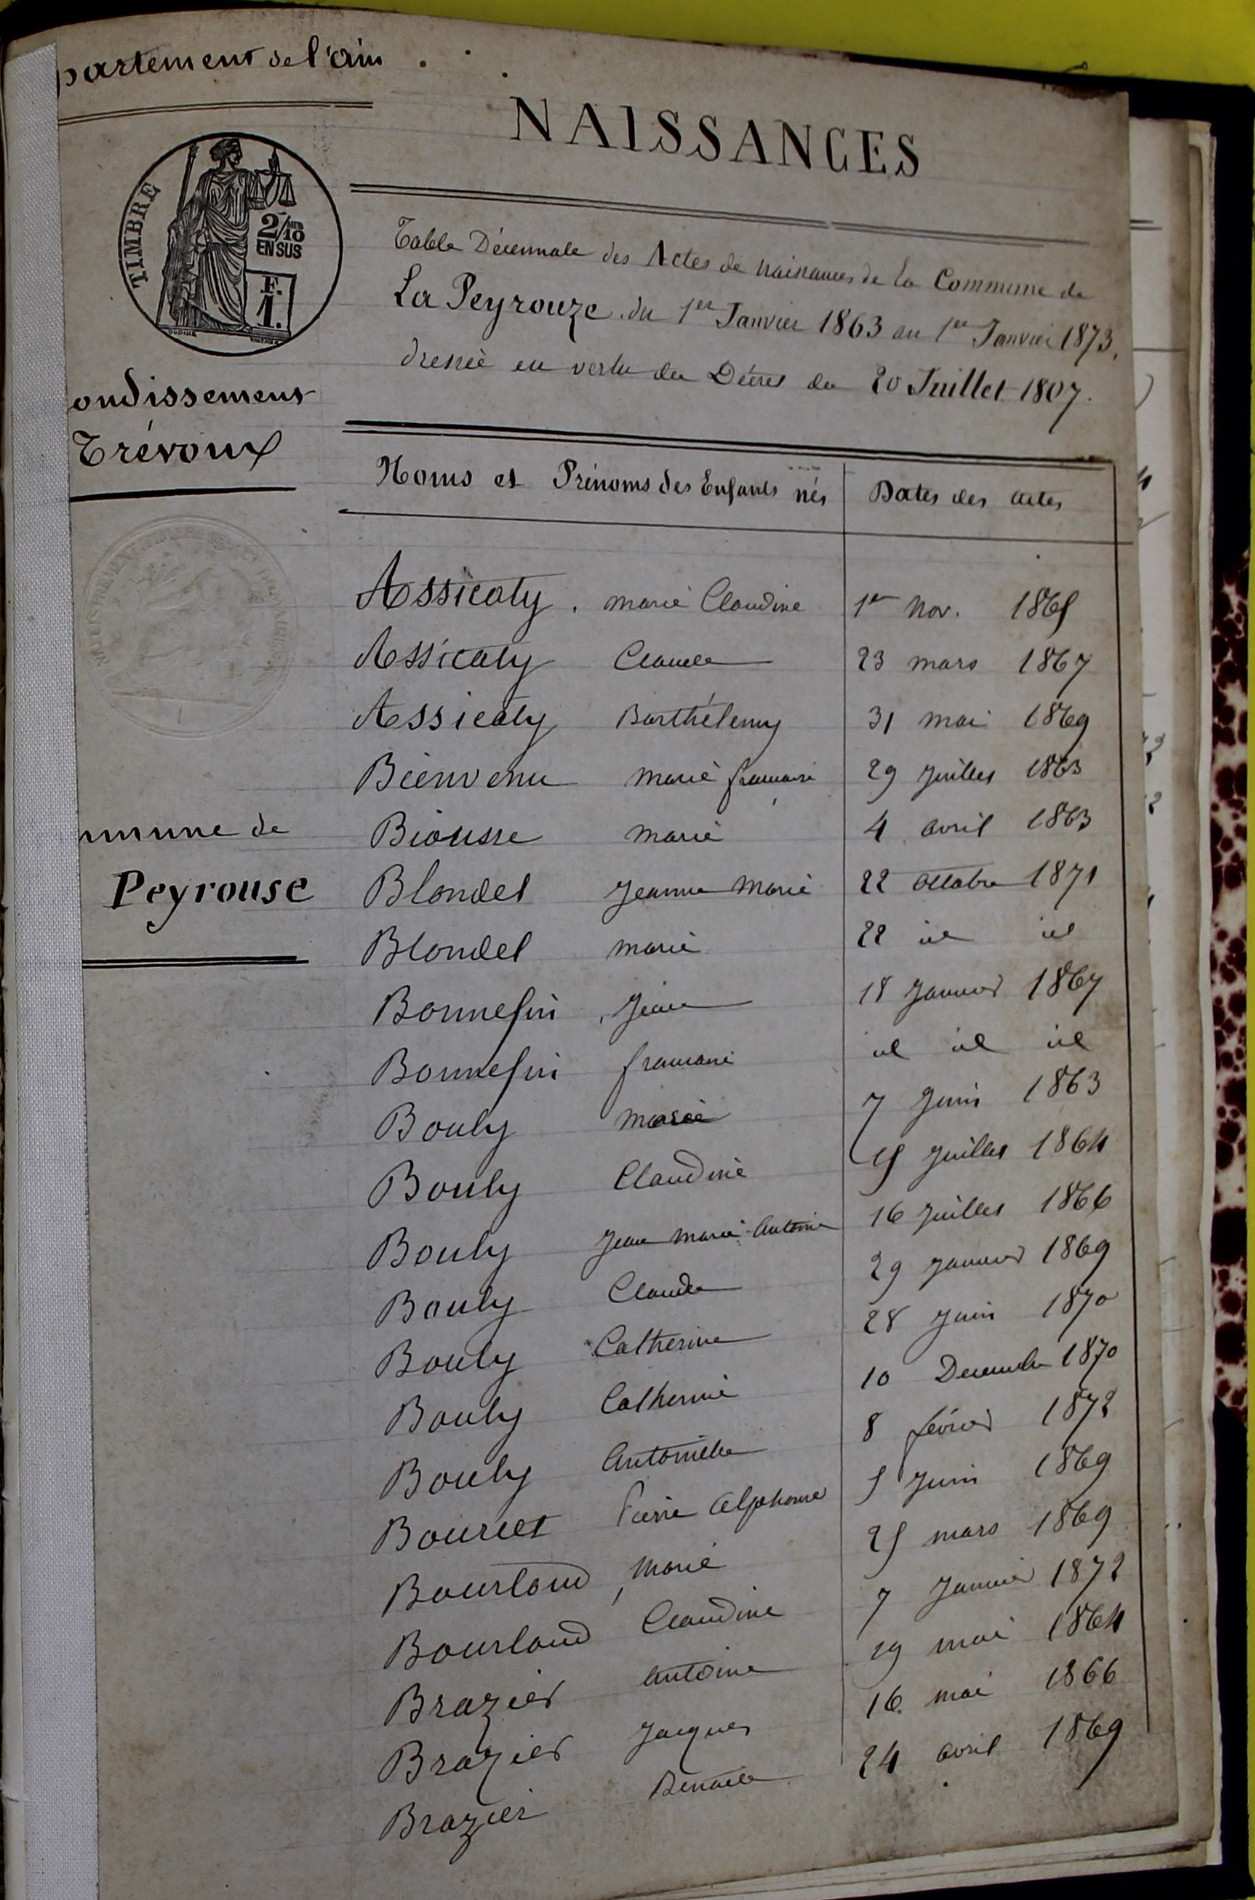 partement de l'ain
NAISSANCES
TIMBRE
2/10
EN SUS
F.
1.
Table Décennale des Actes de naissances de la Commune de
La Peyrouze du 1er Janvier 1863 au 1er Janvier 1873,
dressée en vertu du Décret du 20 Juillet 1807.
ondissement
Trévoux
mmune de
Peyrouse
Noms et Prénoms des Enfants nés Dates des actes
Assicaty marie Claudine 1er Nov. 1865
Assicaty Claude 23 mars 1867
Assicaty Barthélemy 31 mai 1869
Bienvenu marie francoise 29 Juillet 1863
Biousse marie 4 avril 1863
Blondel Jeanne Marie 22 octobre 1871
Blondel marie 22 id id
Bonnefin Jean 18 Janvier 1867
Bonnefin francoise id id id
Bouly marie 7 Juin 1863
Bouly Claudine 15 Juillet 1864
Bouly Jean Marie Antoine 16 Juillet 1866
Bouly Claude 29 Janvier 1869
Bouly Catherine 28 Juin 1870
Bouly Catherine 10 Decembre 1870
Bouly Antoinette 8 février 1872
Bourcet Pierre Alphonse 5 Juin 1869
Bourloud Marie 25 mars 1869
Bourloud Claudine 7 Janvier 1872
Brazier Antoine 29 mai 1864
Brazier Jacques 16 mai 1866
Brazier Benoite 24 avril 1869